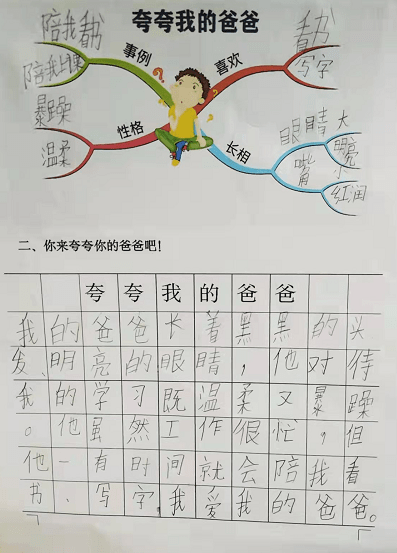 夸夸我的爸爸
陪我看书
陪我上课
事例
喜欢
看书
写字
暴躁
温柔
性格
长相
眼睛
大
明亮
嘴角
小
红润
二、你来夸夸你的爸爸吧!
夸夸我的爸爸
我的爸爸长着黑黑的头
发、明亮的眼睛,他对待
我的学习既温柔又暴躁
。他虽然工作很忙,但
他一有时间就会陪我看
书、写字,我爱我的爸爸。